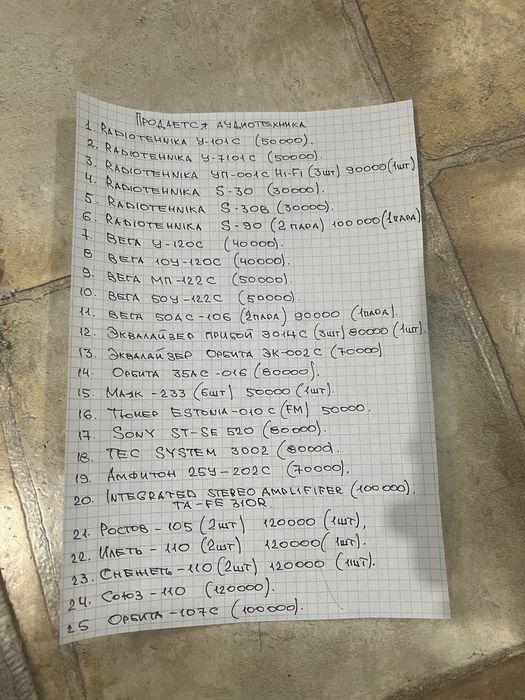 Продаётся аудиотехника
1. Radiotehnika У-101С (50000).
2. Radiotehnika У-7101С (50000).
3. Radiotehnika УП-001С Hi-Fi (3шт) 90000 (1шт)
4. Radiotehnika S-30 (30000).
5. Radiotehnika S-30B (30000).
6. Radiotehnika S-90 (2 пара) 100000 (1пара)
7. Вега У-120С (40000).
8 Вега 10У-120С (40000).
9. Вега МП-122С (50000).
10. Вега 50У-122С (50000).
11. Вега 50АС-106 (2пара) 90000 (1пара).
12. Эквалайзер Прибой Э014С (3шт) 80000 (1шт).
13. Эквалайзер Орбита ЭК-002С (70000)
14. Орбита 35АС-016 (80000).
15. Маяк-233 (6шт) 50000 (1шт).
16. Тюнер Estonia-010С (FM) 50000.
17. Sony ST-SE 520 (80000).
18. TEC System 3002 (80000).
19. Амфитон 25У-202С (70000).
20. Integrated Stereo Amplififer (100000).
TA-FE 310R
21. Ростов-105 (2шт) 120000 (1шт),
22. Илеть-110 (2шт) 120000 (1шт).
23. Снежеть-110 (2шт) 120000 (1шт).
24. Союз-110 (120000).
25 Орбита-107С (100000).